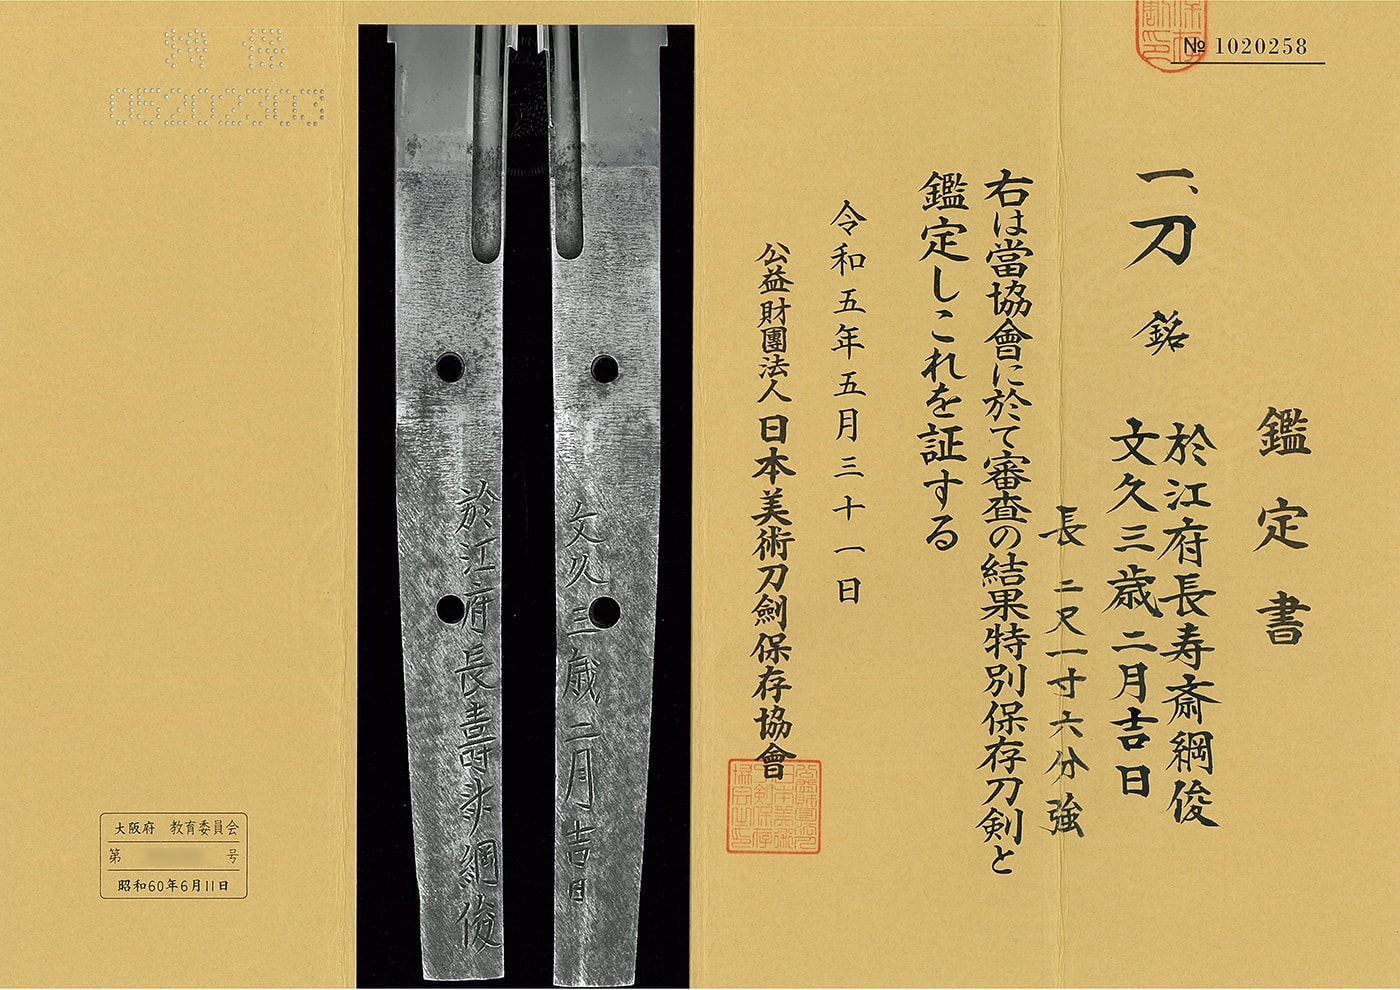 № 1020258
鑑定書
一、刀 銘 於江府長寿斎綱俊
文久三歳二月吉日
長 二尺一寸六分強
右は當協會に於て審査の結果特別保存刀剣と
鑑定しこれを証する
令和五年五月三十一日
公益財團法人日本美術刀劍保存協會
文久三歳二月吉日
於江府長壽斎綱俊
特保
05202303
大阪府 教育委員会
第 号
昭和60年6月11日